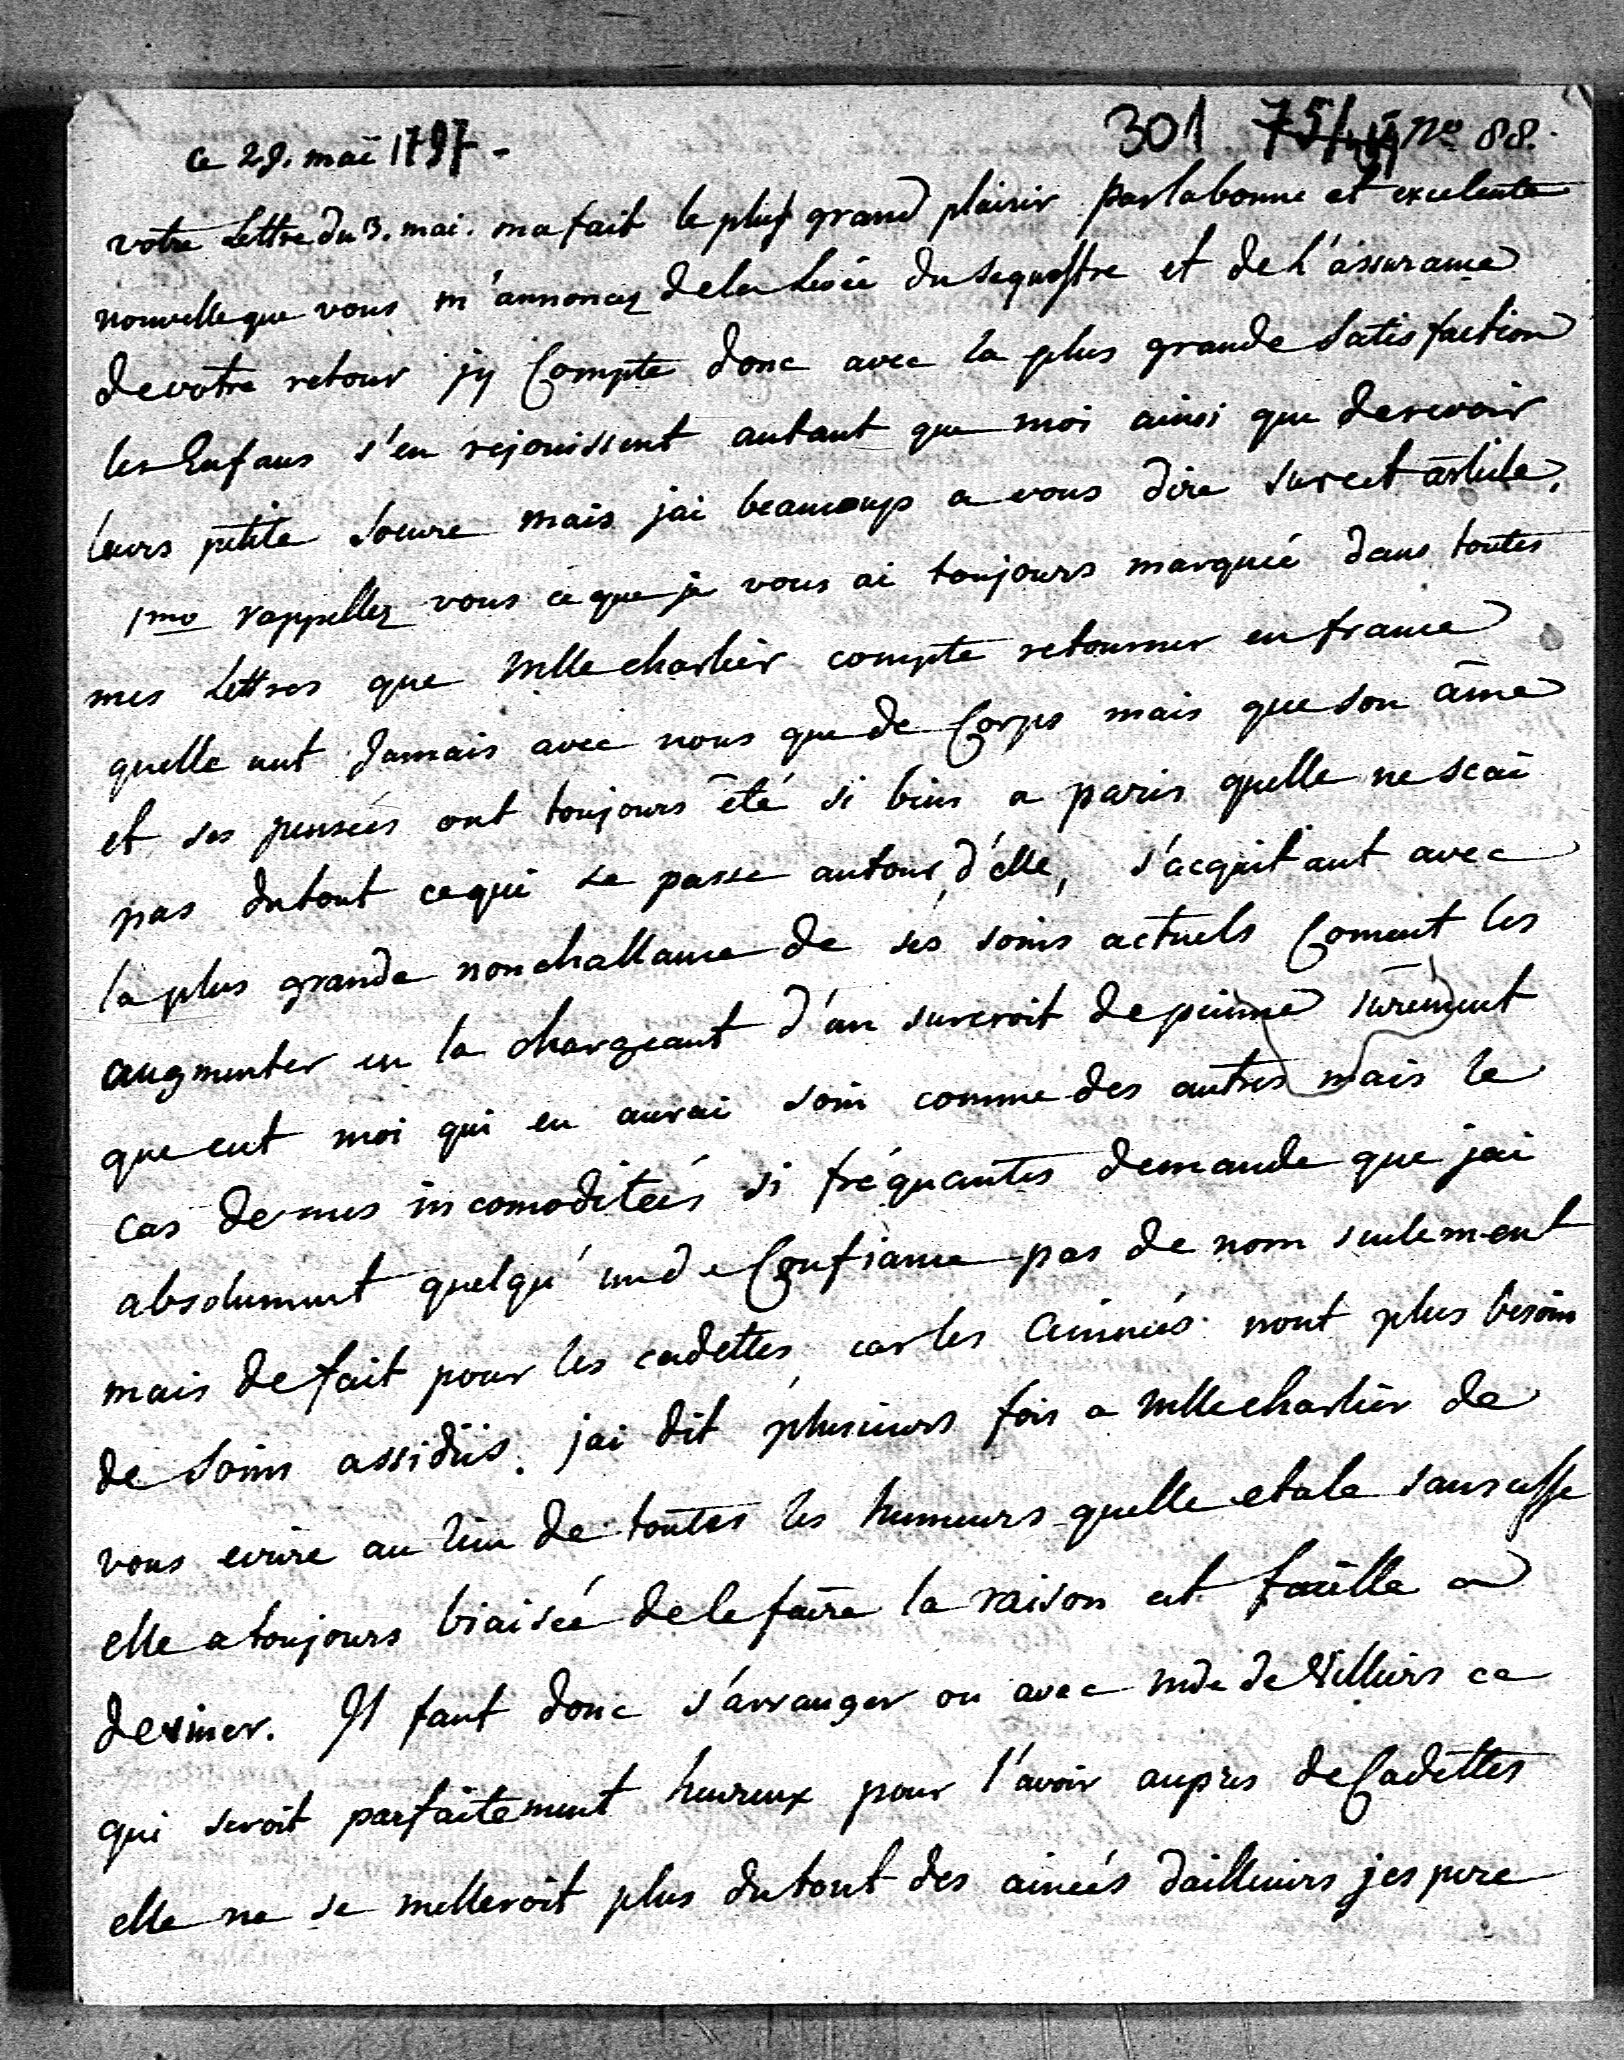 ce 29. mai 1797 -
301 nº 88.
votre Lettre du 3. mai. ma fait le plus grand plaisir par la bonne et excelente
nouvelle que vous m'annoncez de la levée du sequestre et de l'assurance
de votre retour jy Compte donc avec la plus grande Satisfaction
les Enfans s'en rejouissent autant que moi ainsi que de revoir
leurs petite Soeure mais jai beaucoup a vous dire sur cet article,
1mo rappellez vous ce que je vous ai toujours marquée dans toutes
mes Lettres que Mlle charlier compte retourner en france
quelle nut Jamais avec nous que de Corps mais que son âme
et ses pensées ont toujours été si bien a paris quelle ne scai
pas du tout ce qui se passe autour d'elle, s'acquitant avec
la plus grande nonchallance de sés soins actuels Coment les
augmenter en la chargeant d'un surcroit de peinne surement
que cut moi qui en aurai soin comme des autres mais le
cas de mes incomoditées si fréquantes demande que jai
absolument quelqu'un de Confiance pas de nom seulement
mais de fait pour les cadettes car les Ainnés nont plus besoin
de Soins assidüs. jai dit plusieurs fois a Mlle charlier de
vous ecrire au lieu de toutes les humeurs quelle etale sans cesse
elle a toujours biaisée de le faire la raison est facille a
deviner. Il faut donc s'arranger ou avec Mde de Villiers ce
qui seroit parfaitement heureux pour l'avoir aupres de Cadettes
elle ne se melleroit plus du tout des ainées dailleurs jespere